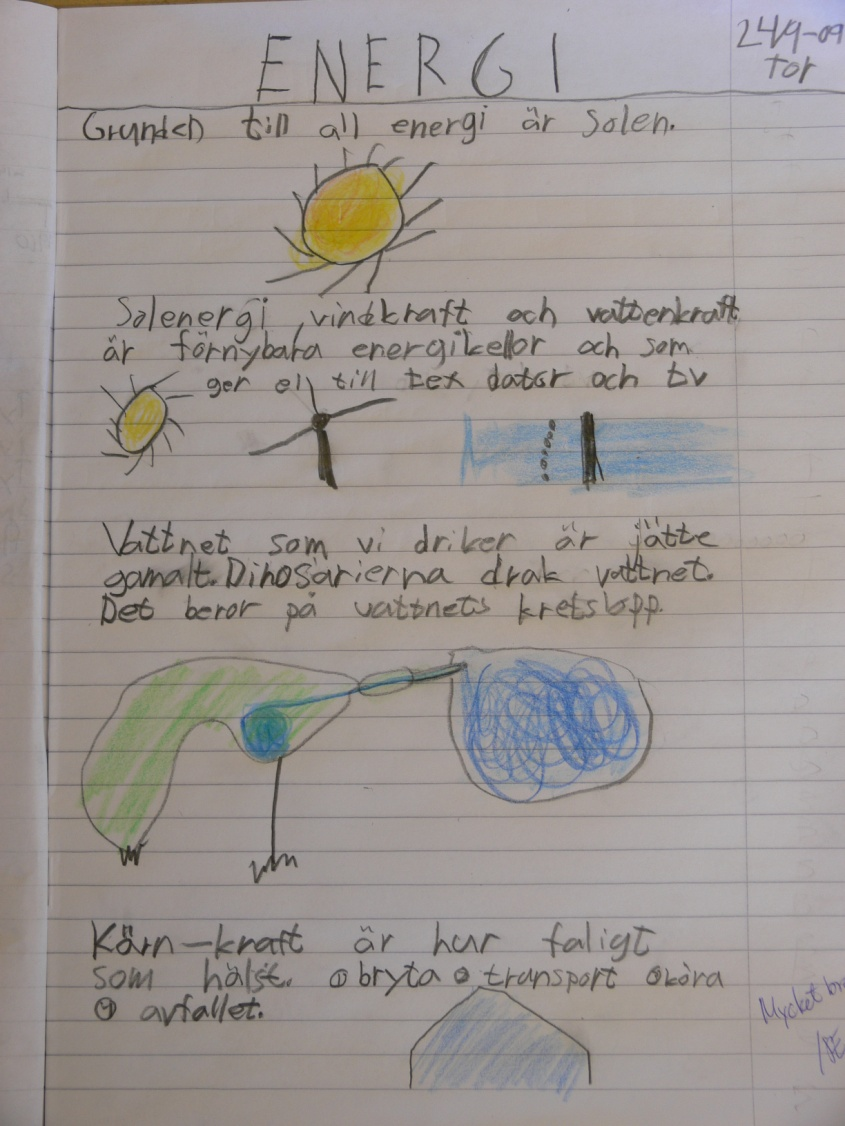 ENERGI
24/9-09
tor
Grunden till all energi är solen.
Solenergi, vindkraft och vattenkraft
är förnybara energikellor och som
ger el till tex dator och tv
Vattnet som vi driker är jätte
gamalt. Dinosarierna drak vattnet.
Det beror på vattnets kretslopp.
Kärn-kraft är hur faligt
som hälst. ① bryta ② transport ③ köra
④ avfallet.
Mycket